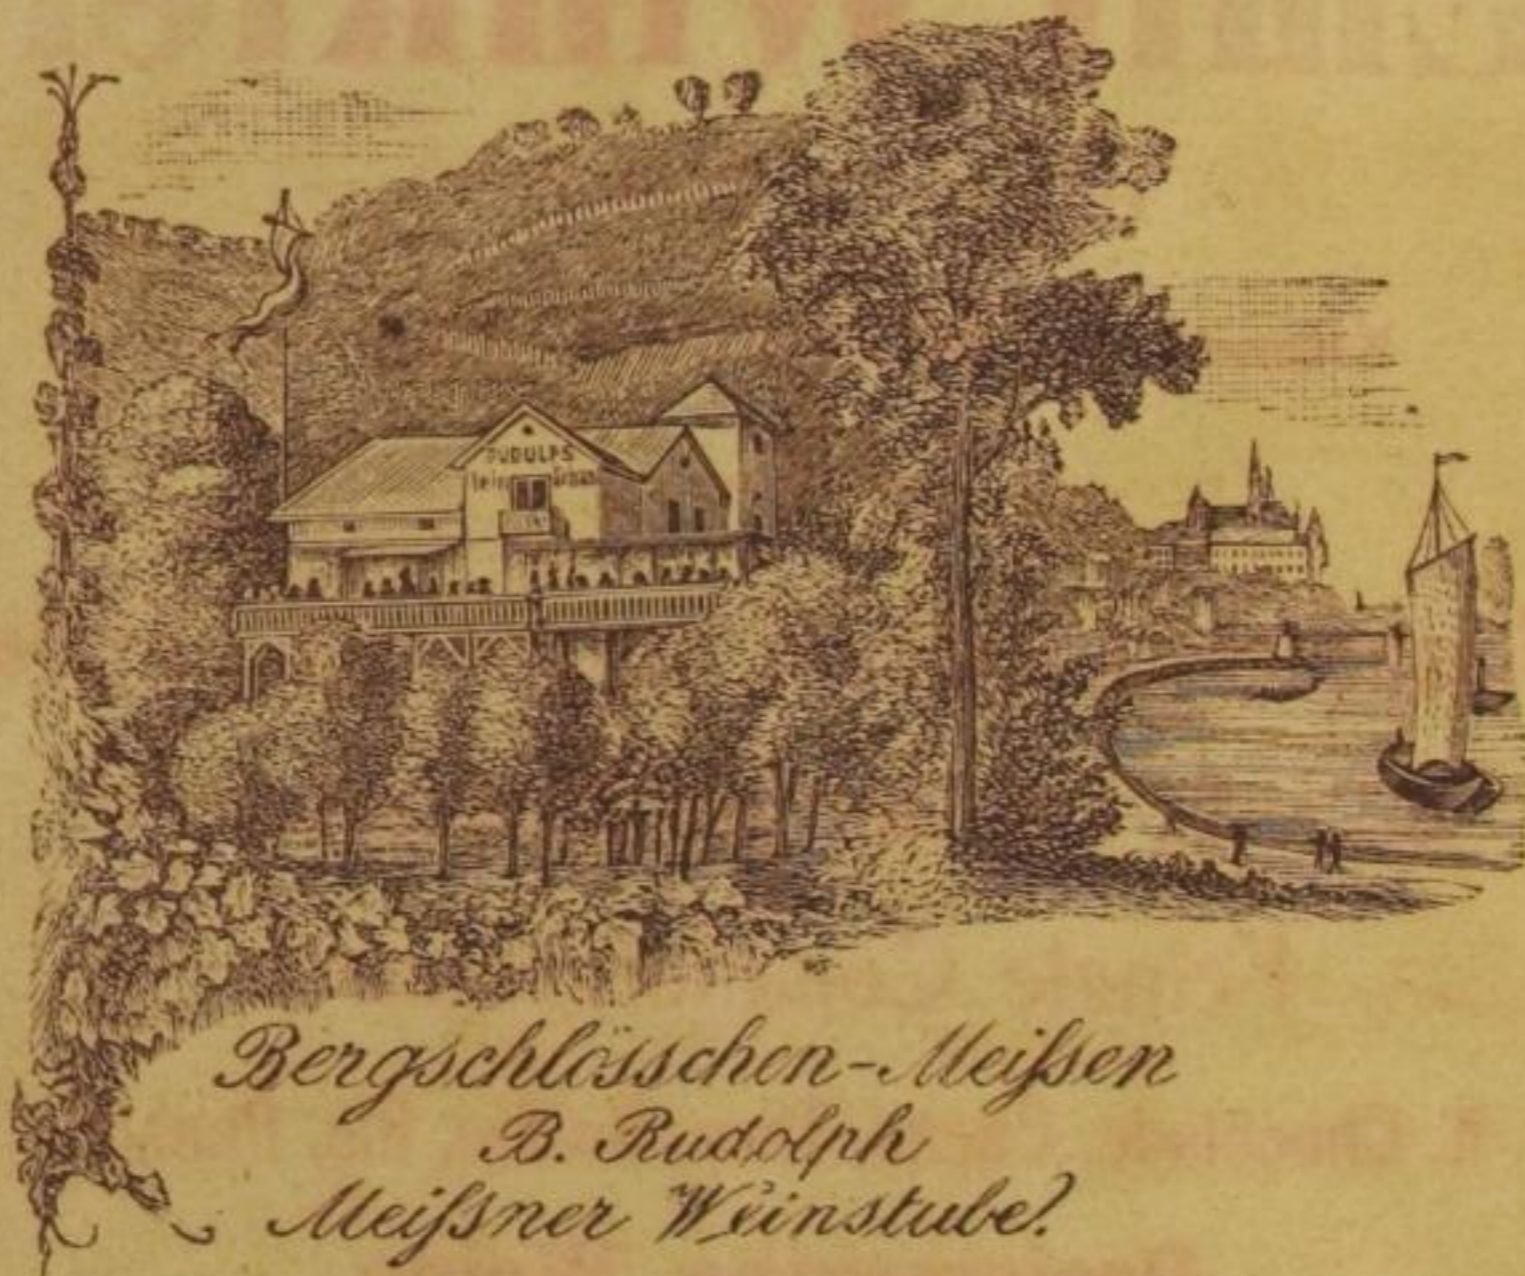 RUDOLPS
Bergschlösschen-Meiſsen
B. Rudolph
Meiſsner Weinstube.